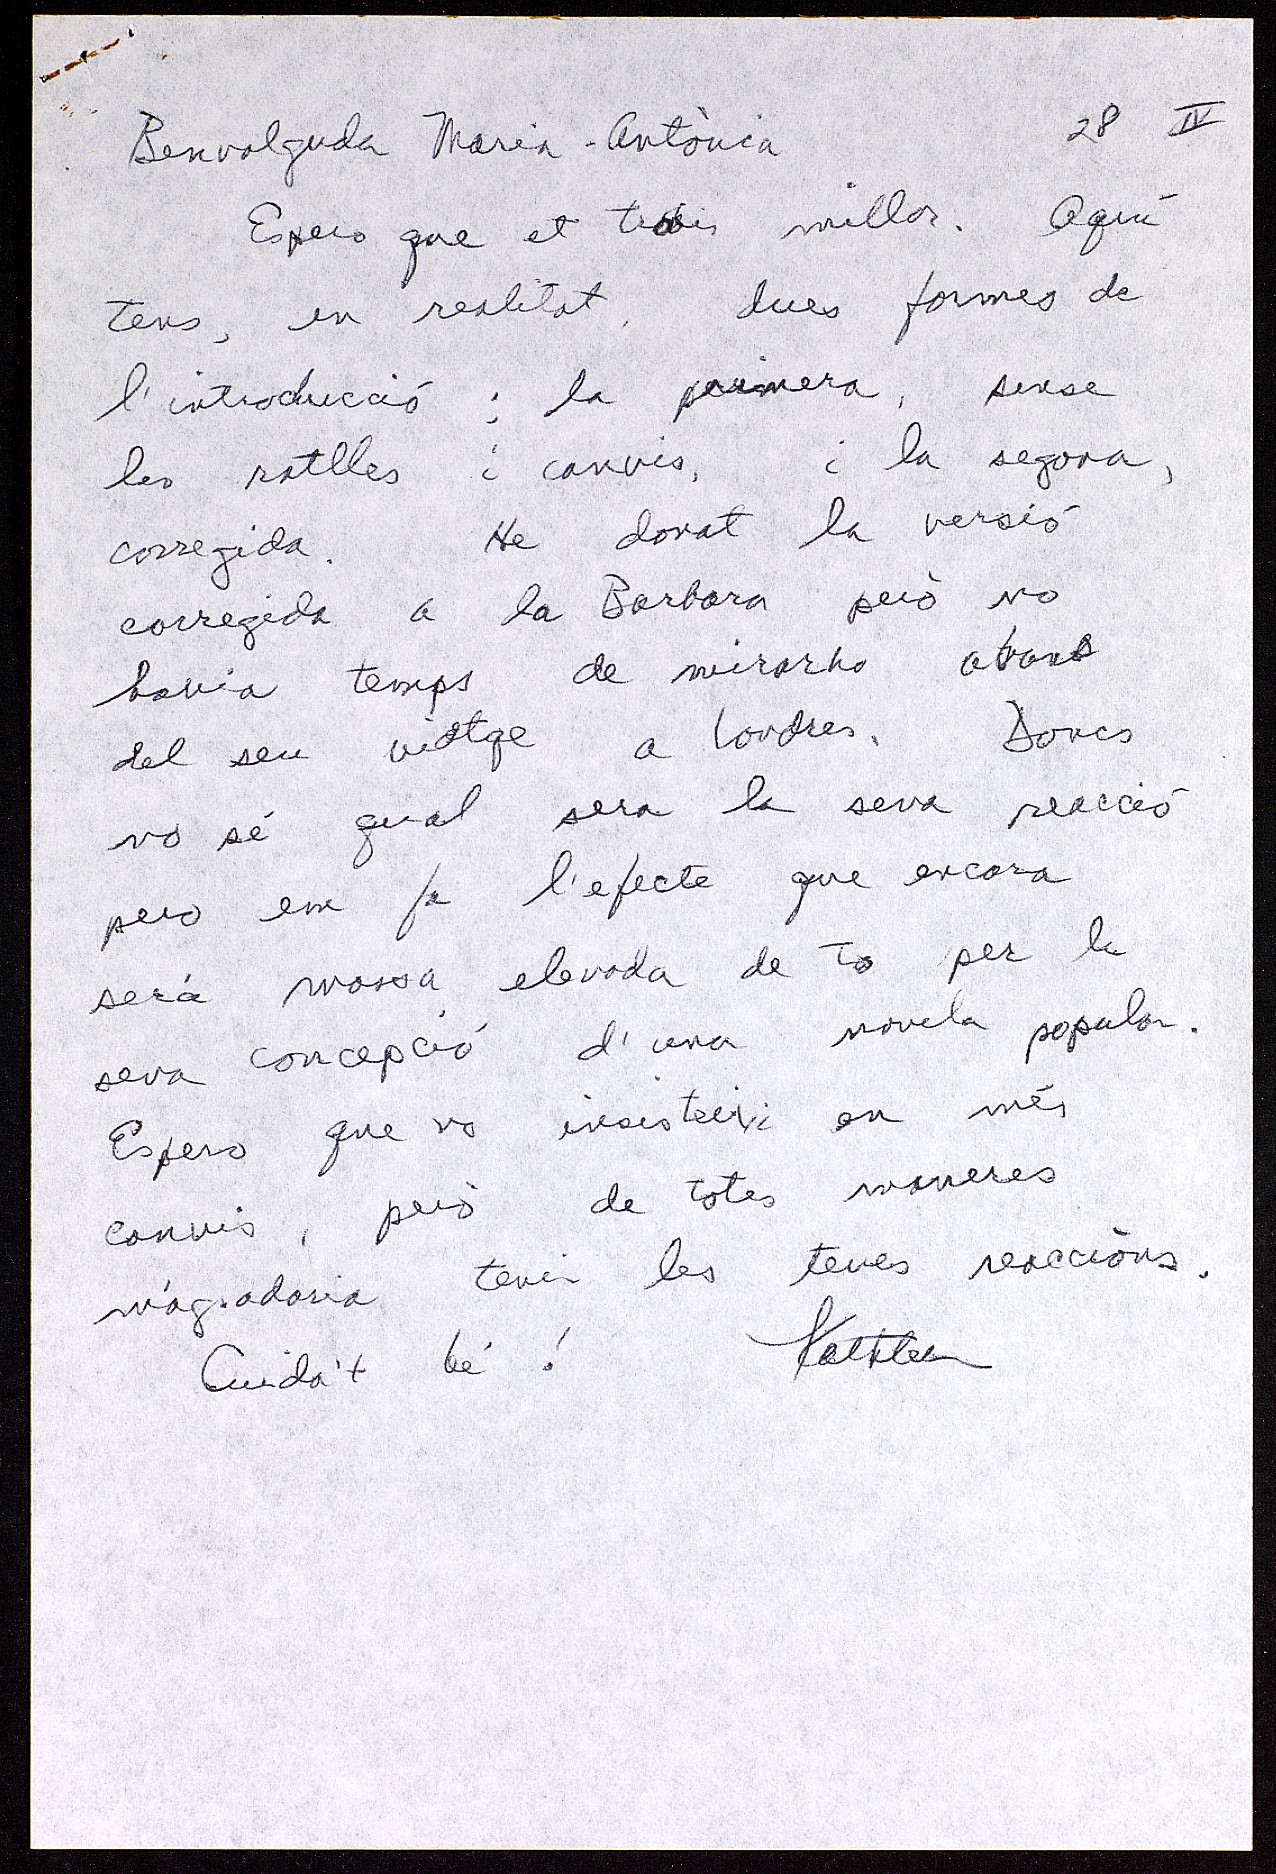 28 IV
Benvolguda Maria-Antònia
Espero que et trobis millor. Aquí
tens, en realitat, dues formes de
l'introducció ; la primera, sense
les ratlles i canvis, i la segona,
corregida. He donat la versió
corregida a la Barbara però no
havia temps de mirarho abans
del seu viatge a Londres. Doncs
no sé qual sera la seva reacció
pero em fa l'efecte que encara
serà massa elevada de to per la
seva concepció d'una novela popular.
Espero que no insisteixi en més
canvis, però de totes maneres
m'agradaria tenir les teves reaccións.
Cuida't bé ! Kathleen